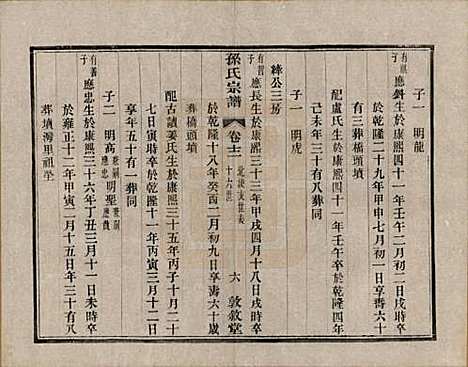 子一 明龍
有祖子 應斜生於康熙四十一年壬午二月初二日戌時卒
於乾隆二十九年甲申七月初一日享壽六十
有三葬橋頭墳
配盧氏生於康熙四十一年壬午卒於乾隆四年
己未年三十有八葬同
子一 明虎
絳公三房
有習子 應長生於康熙三十三年甲戌四月十八日戌時卒
孫氏宗譜 卷十二 六 敦敘堂
於乾隆十八年癸酉二月初九日享壽六十歲
葬橋頭墳
配古讀姜氏生於康熙三十五年丙子十月二十
七日寅時卒於乾隆十一年丙寅二月十二日
享年五十有一葬同
子二 明高 明聖
應忠生於康熙三十六年丁丑三月十一日未時卒
於雍正十二年甲寅二月十五日年三十有八
葬墳灣里祖塋